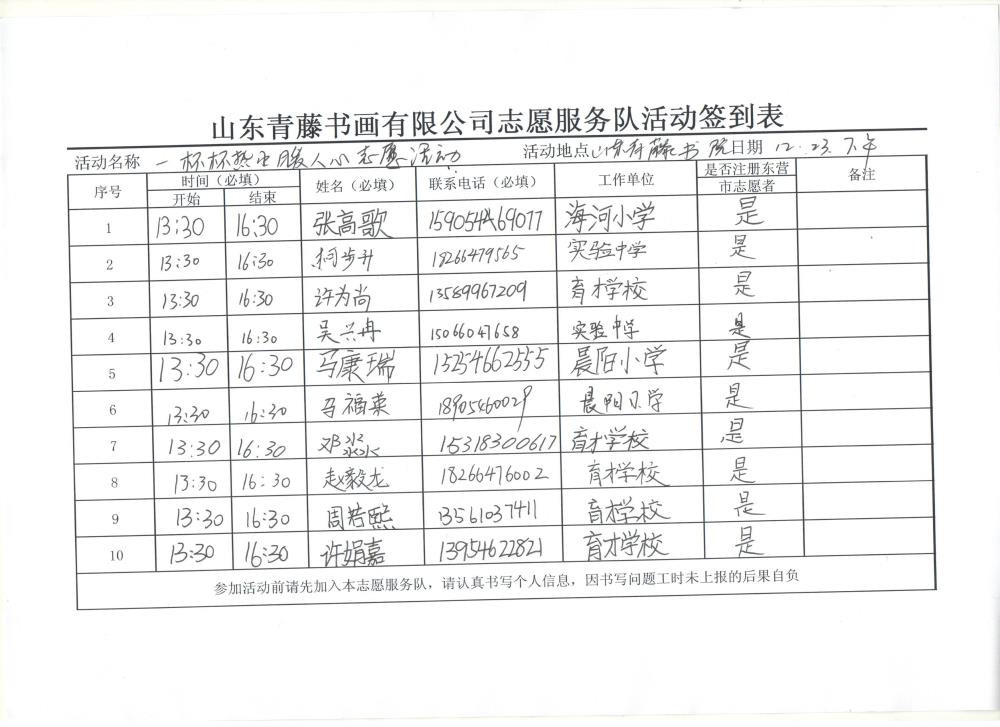 山东青藤书画有限公司志愿服务队活动签到表
活动名称 一杯杯热 暖人心志愿活动 活动地点 山东青藤书院 日期 12.23.下午
序号 时间（必填） 姓名（必填） 联系电话（必填） 工作单位 是否注册东营市志愿者 备注
开始 结束
1 13:30 16:30 张高歌 海河小学 是
2 13:30 16:30 步升 18266479565 实验中学 是
3 13:30 16:30 许为尚 13589967209 育才学校 是
4 13:30 16:30 吴兴冉 15066047658 实验中学 是
5 13:30 16:30 马康瑞 15254662555 晨阳小学 是
6 13:30 16:30 马福莱 18905460029 晨阳小学 是
7 13:30 16:30 邓淼淼 15318300617 育才学校 是
8 13:30 16:30 赵毅龙 18266476002 育才学校 是
9 13:30 16:30 周若熙 13561037411 育才学校 是
10 13:30 16:30 许娟嘉 13954622821 育才学校 是
参加活动前请先加入本志愿服务队，请认真书写个人信息，因书写问题工时未上报的后果自负